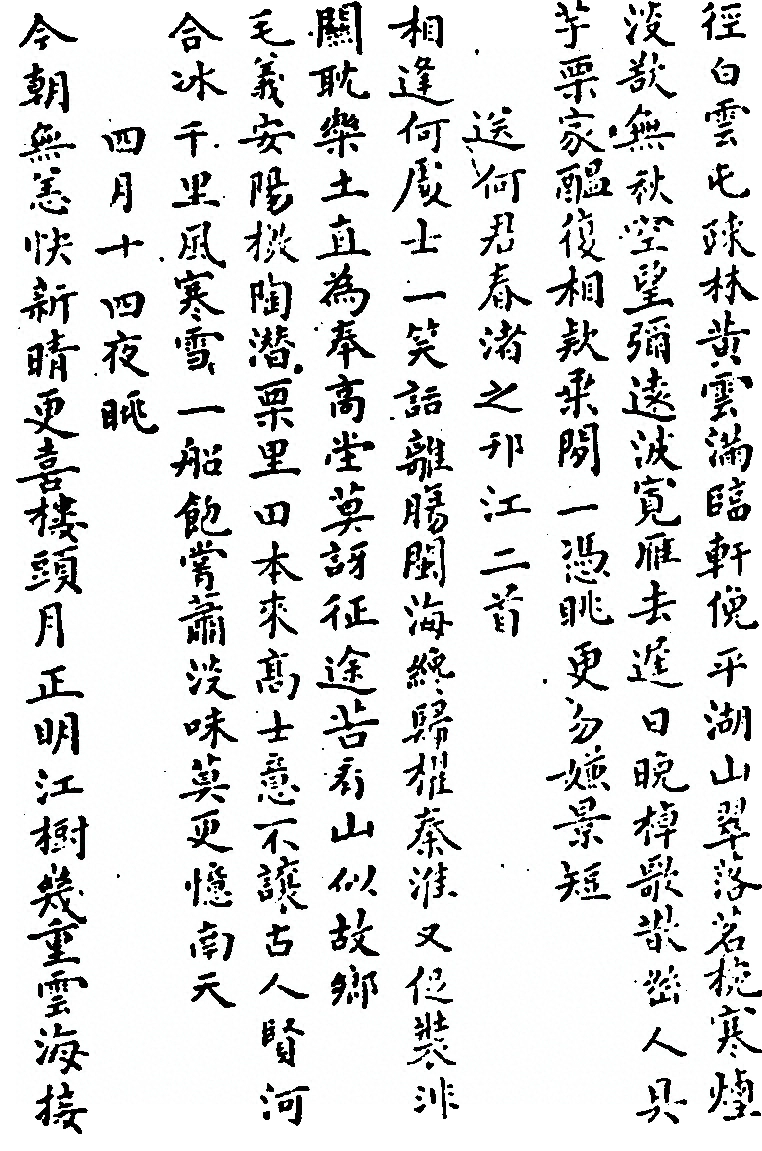 徑白雲屯疎林黃雲滿臨軒俛平湖山翠落茗椀寒煙
沒數無秋空望彌遠波寬雁去遲日晚棹歌散幽人具
芋栗家醞復相款乘閒一憑眺更勿嫌景短
送何君春渚之邗江二首
相逢何處士一笑話離觴閩海纔歸櫂秦淮又促裝非
關耽樂土直為奉高堂莫訝征途苦看山似故鄉
毛義安陽檄陶潛栗里田本來高士意不讓古人賢河
合冰千里風寒雪一船飽嘗蕭淡味莫更憶南天
四月十四夜眺
今朝無恙快新晴更喜樓頭月正明江樹幾重雲海接